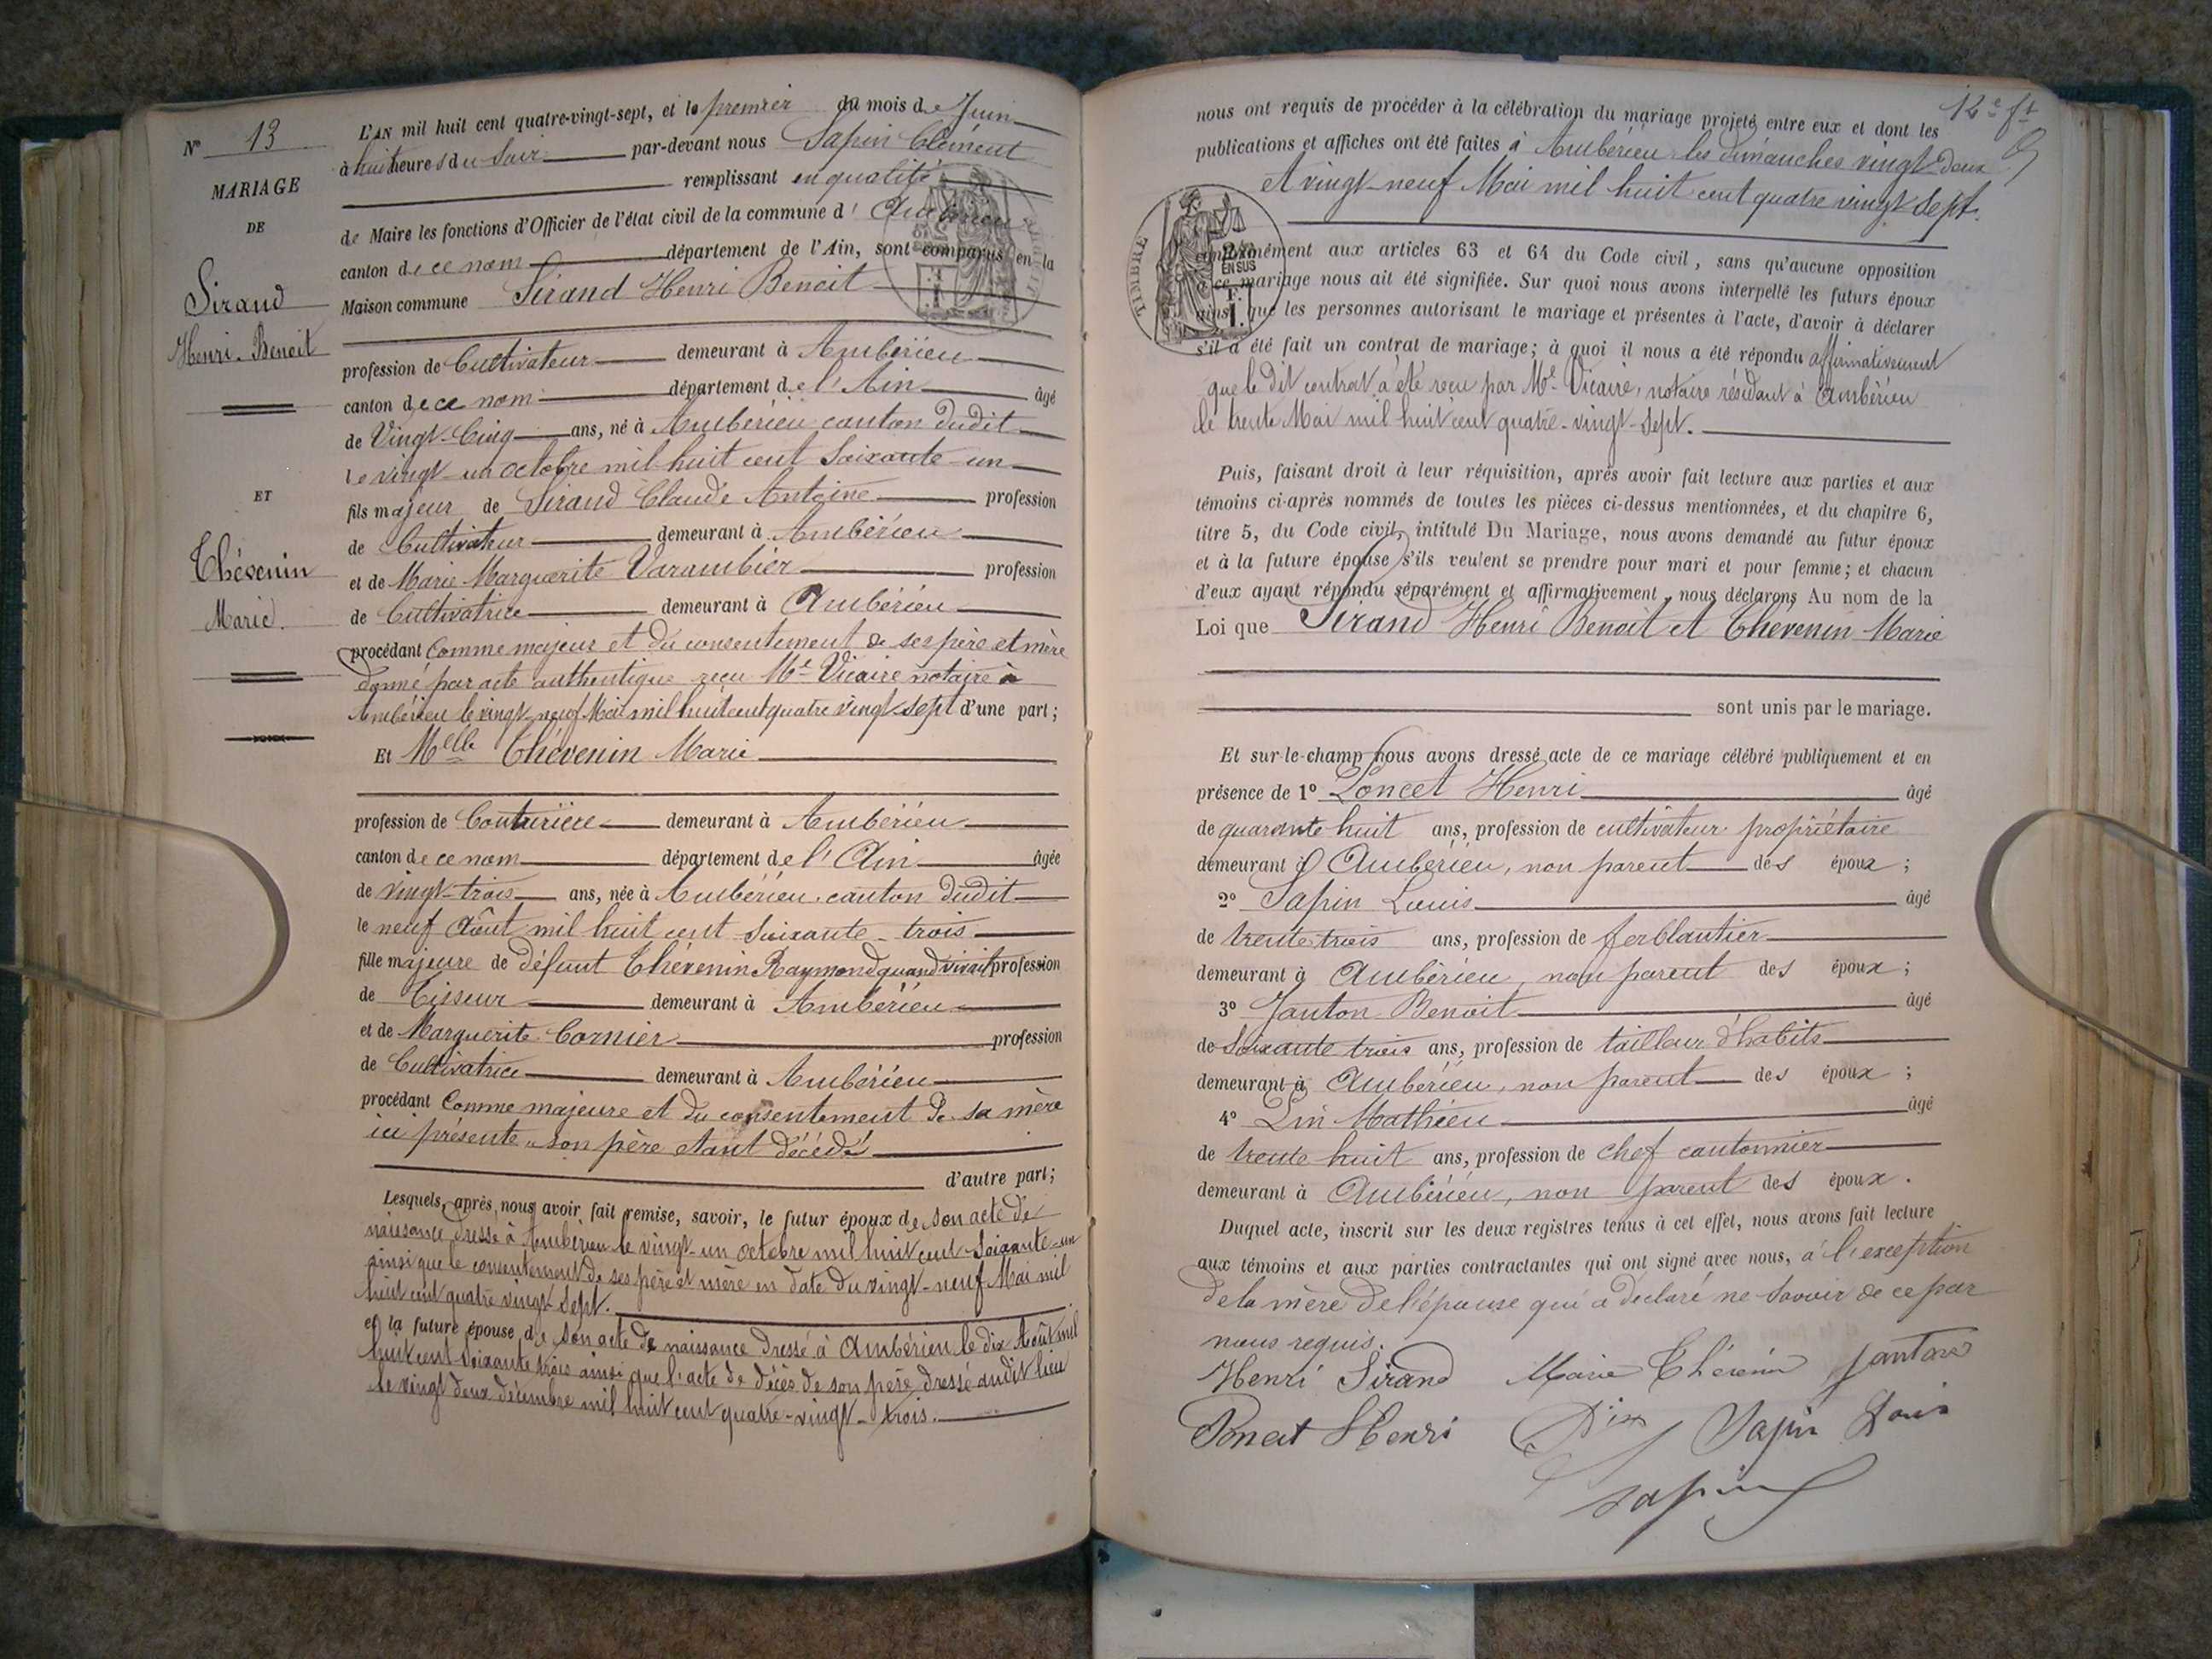 N° 13
MARIAGE
DE
Sirand
Henri-Benoit
ET
Thévenin
Marie.
L'AN mil huit cent quatre-vingt-sept, et le premier du mois de Juin
à huit heures du Soir par-devant nous Sapin Clément
remplissant en qualité
de Maire les fonctions d'Officier de l'état civil de la commune d' Ambérieu
canton de ce nom département de l'Ain, sont comparus en la
Maison commune Sirand Henri Benoit
profession de Cultivateur demeurant à Ambérieu
canton de ce nom département de l'Ain âgé
de Vingt-Cinq ans, né à Ambérieu canton dudit
le vingt-un octobre mil huit cent Soixante-un
fils majeur de Sirand Claude Antoine profession
de Cultivateur demeurant à Ambérieu
et de Marie Marguerite Varambier profession
de Cultivatrice demeurant à Ambérieu
procédant comme majeur et du consentement de ses père et mère
donné par acte authentique reçu Me Vicaire notaire à
Ambérieu le vingt neuf Mai mil huit cent quatre vingt-sept d'une part;
Et Melle Thévenin Marie
profession de Couturière demeurant à Ambérieu
canton de ce nom département de l'Ain âgée
de vingt-trois ans, née à Ambérieu canton dudit
le neuf Août mil huit cent Soixante-trois
fille majeure de défunt Thévenin Raymond quand vivait profession
de Tisseur demeurant à Ambérieu
et de Marguerite Cornier profession
de Cultivatrice demeurant à Ambérieu
procédant Comme majeure et du consentement de sa mère
ici présente, son père étant décédé
d'autre part;
Lesquels, après nous avoir fait remise, savoir, le futur époux de son acte de
naissance dressé à Ambérieu le vingt-un octobre mil huit cent Soixante-un
ainsi que le consentement de ses père et mère en date du vingt-neuf Mai mil
huit cent quatre vingt-Sept.
et la future épouse de son acte de naissance dressé à Ambérieu le dix Août mil
huit cent soixante trois ainsi que l'acte de décès de son père dressé audit lieu
le vingt deux décembre mil huit cent quatre-vingt-trois.
12e ft
nous ont requis de procéder à la célébration du mariage projeté entre eux et dont les
publications et affiches ont été faites à Ambérieu les dimanches vingt-deux
et vingt-neuf Mai mil huit cent quatre vingt sept.
TIMBRE
EN SUS
conformément aux articles 63 et 64 du Code civil, sans qu'aucune opposition
à ce mariage nous ait été signifiée. Sur quoi nous avons interpellé les futurs époux
ainsi que les personnes autorisant le mariage et présentes à l'acte, d'avoir à déclarer
s'il a été fait un contrat de mariage; à quoi il nous a été répondu affirmativement
que le dit contrat a été reçu par Me Vicaire, notaire résidant à Ambérieu
le trente Mai mil huit cent quatre-vingt-sept.
Puis, faisant droit à leur réquisition, après avoir fait lecture aux parties et aux
témoins ci-après nommés de toutes les pièces ci-dessus mentionnées, et du chapitre 6,
titre 5, du Code civil, intitulé Du Mariage, nous avons demandé au futur époux
et à la future épouse s'ils veulent se prendre pour mari et pour femme; et chacun
d'eux ayant répondu séparément et affirmativement, nous déclarons Au nom de la
Loi que Sirand Henri Benoit et Thévenin Marie
sont unis par le mariage.
Et sur-le-champ nous avons dressé acte de ce mariage célébré publiquement et en
présence de 1° Poncet Henri âgé
de quarante huit ans, profession de cultivateur propriétaire
demeurant à Ambérieu, non parent des époux;
2° Sapin Louis âgé
de trente trois ans, profession de ferblantier
demeurant à Ambérieu, non parent des époux;
3° Janton Benoit âgé
de soixante trois ans, profession de tailleur d'habits
demeurant à Ambérieu, non parent des époux;
4° Pin Mathieu âgé
de trente huit ans, profession de chef cantonnier
demeurant à Ambérieu, non parent des époux.
Duquel acte, inscrit sur les deux registres tenus à cet effet, nous avons fait lecture
aux témoins et aux parties contractantes qui ont signé avec nous, à l'exception
de la mère de l'épouse qui a déclaré ne savoir de ce par
nous requis.
Henri Sirand Marie Thévenin Janton
Poncet Henri Pin Sapin Louis
Sapin